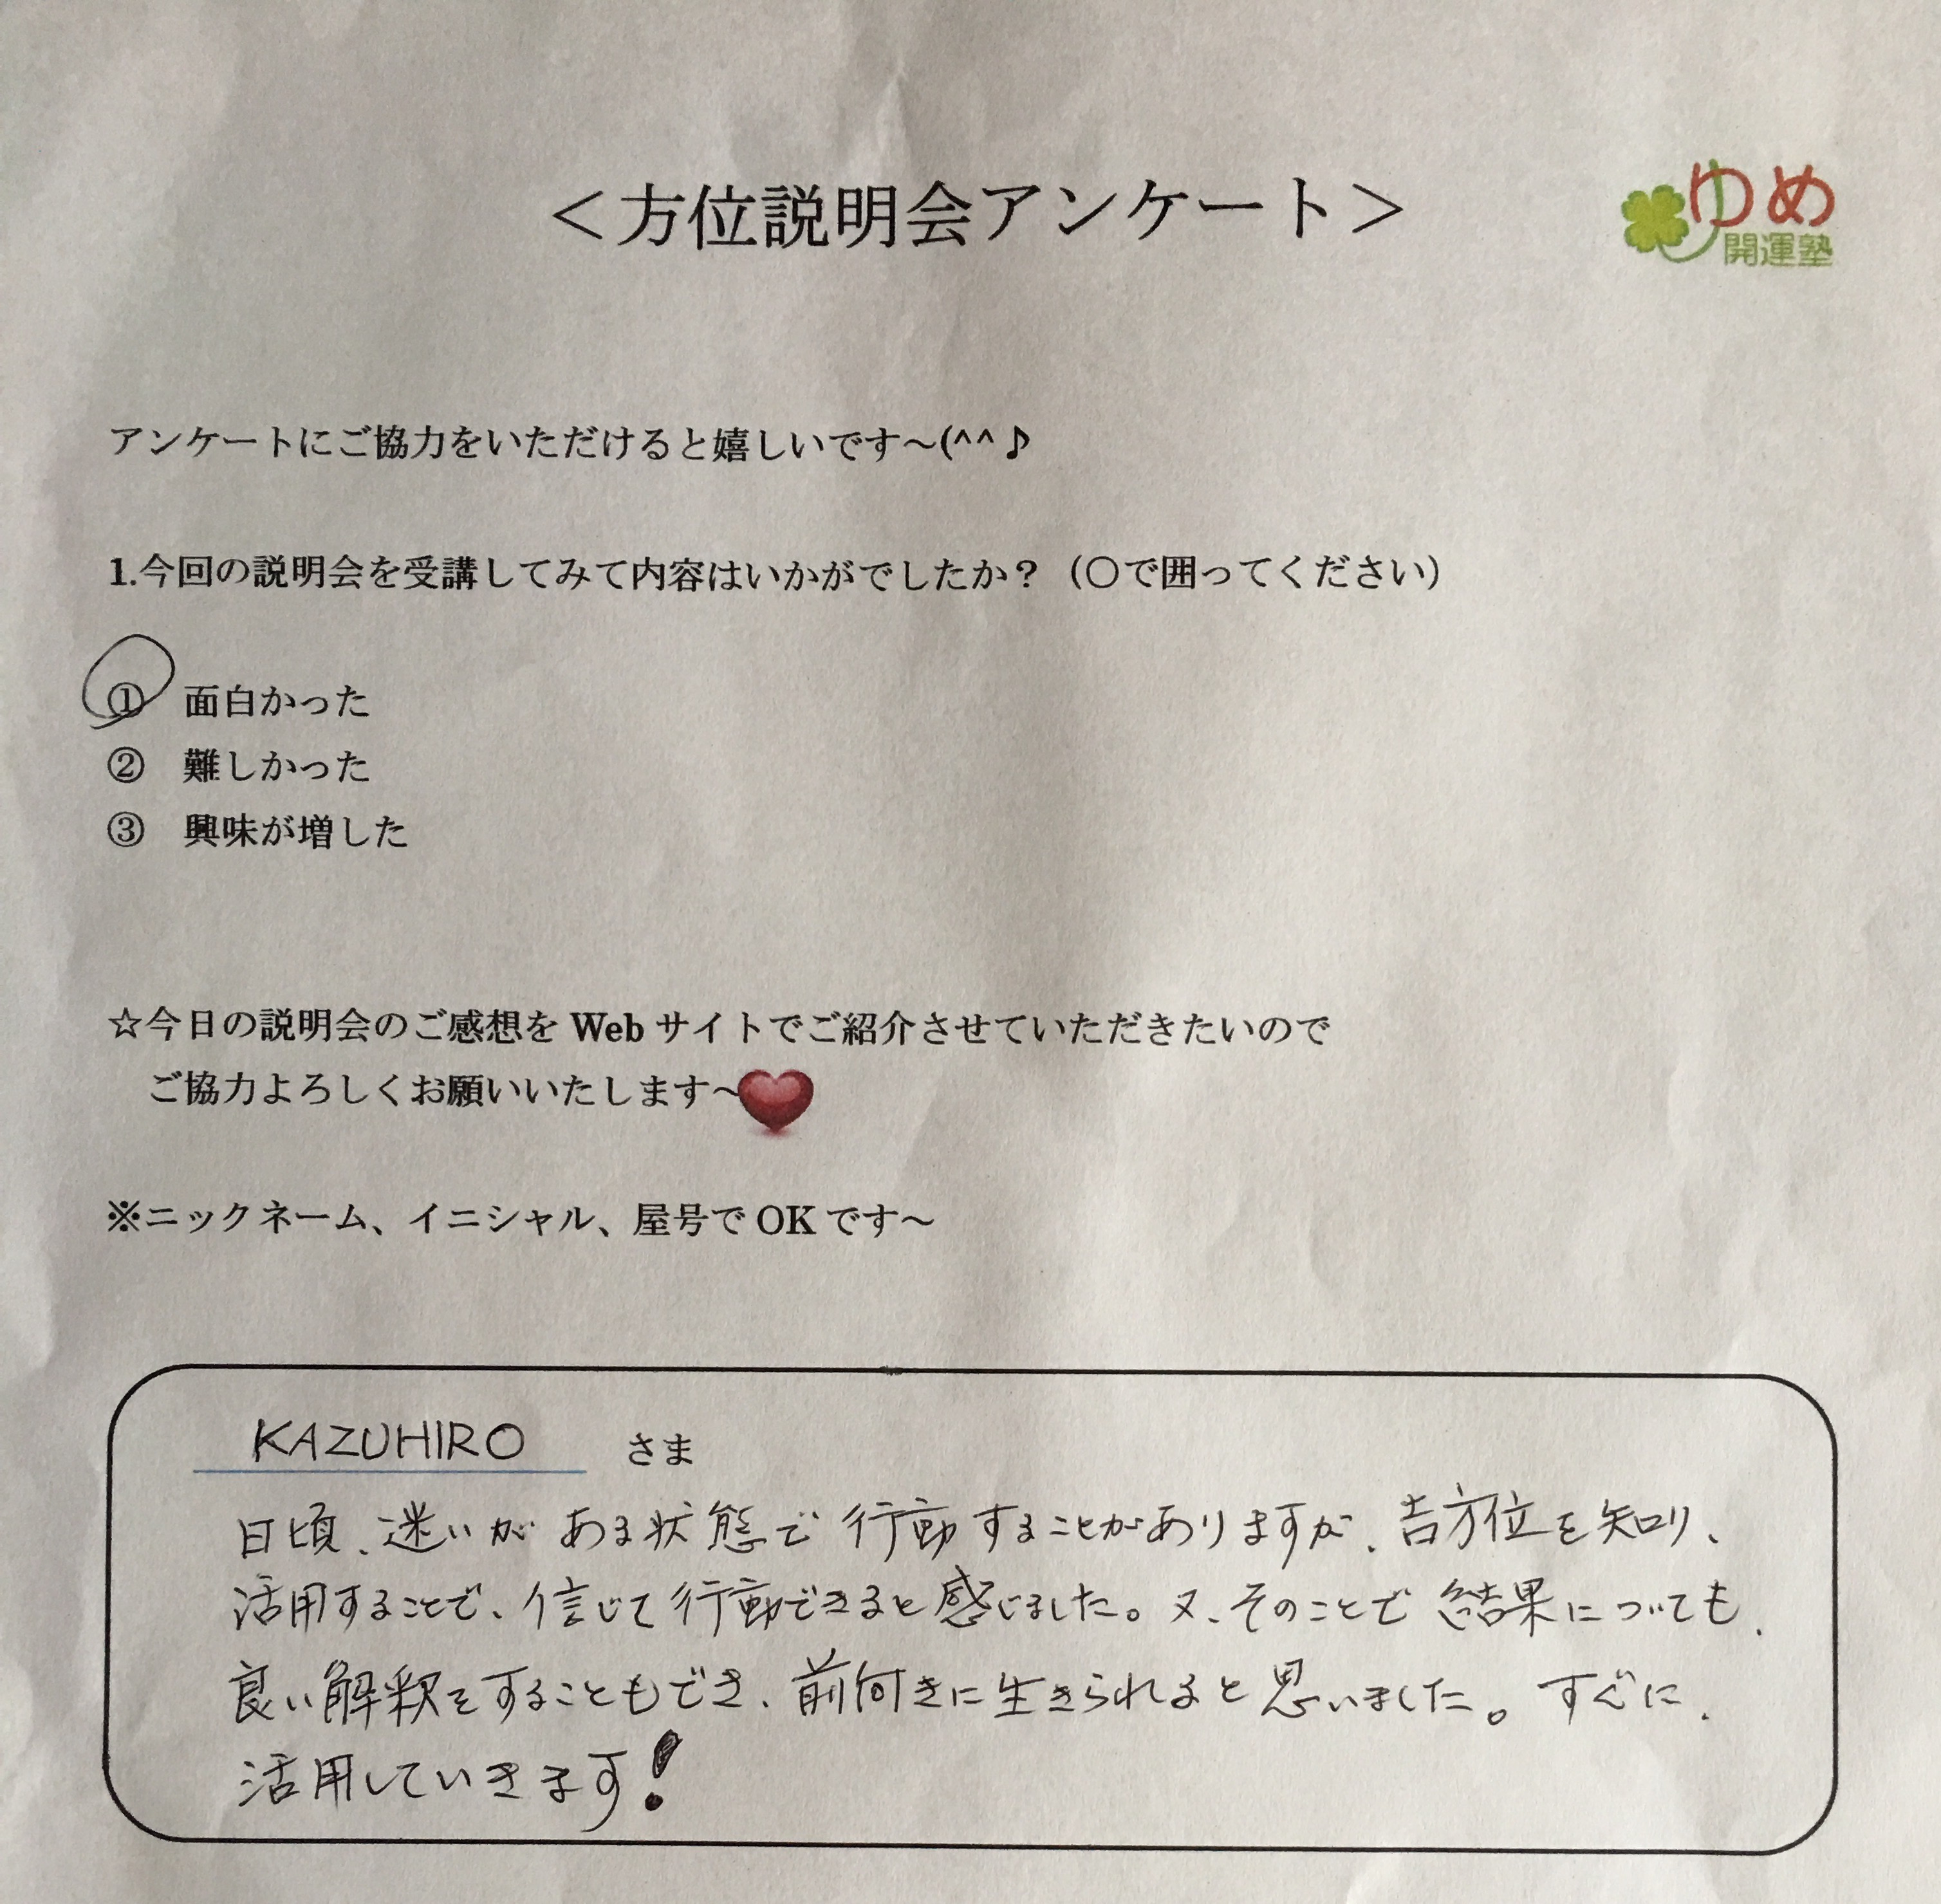 ＜方位説明会アンケート＞
ゆめ
開運塾
アンケートにご協力をいただけると嬉しいです～(^^♪
1.今回の説明会を受講してみて内容はいかがでしたか？（〇で囲ってください）
① 面白かった
② 難しかった
③ 興味が増した
☆今日の説明会のご感想を Web サイトでご紹介させていただきたいので
ご協力よろしくお願いいたします～
※ニックネーム、イニシャル、屋号で OK です～
KAZUHIRO さま
日頃、迷いがある状態で行動することがありますが、吉方位を知り、
活用することで、信じて行動できると感じました。又、そのことで結果についても、
良い解釈をすることもでき、前向きに生きられると思いました。すぐに、
活用していきます！